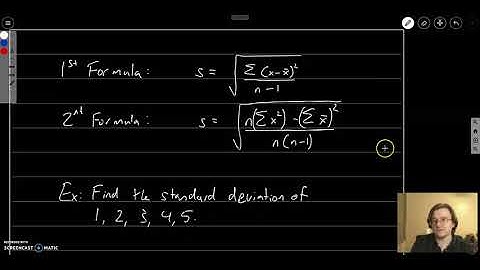 1st Formula: s = √(Σ(x-x̄)² / n-1)
2nd Formula: s = √(n(Σx²)-(Σx̄)² / n(n-1))
Ex: Find the standard deviation of
1, 2, 3, 4, 5.
RECORDED WITH
SCREENCAST MATIC